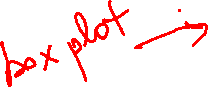 box plot →